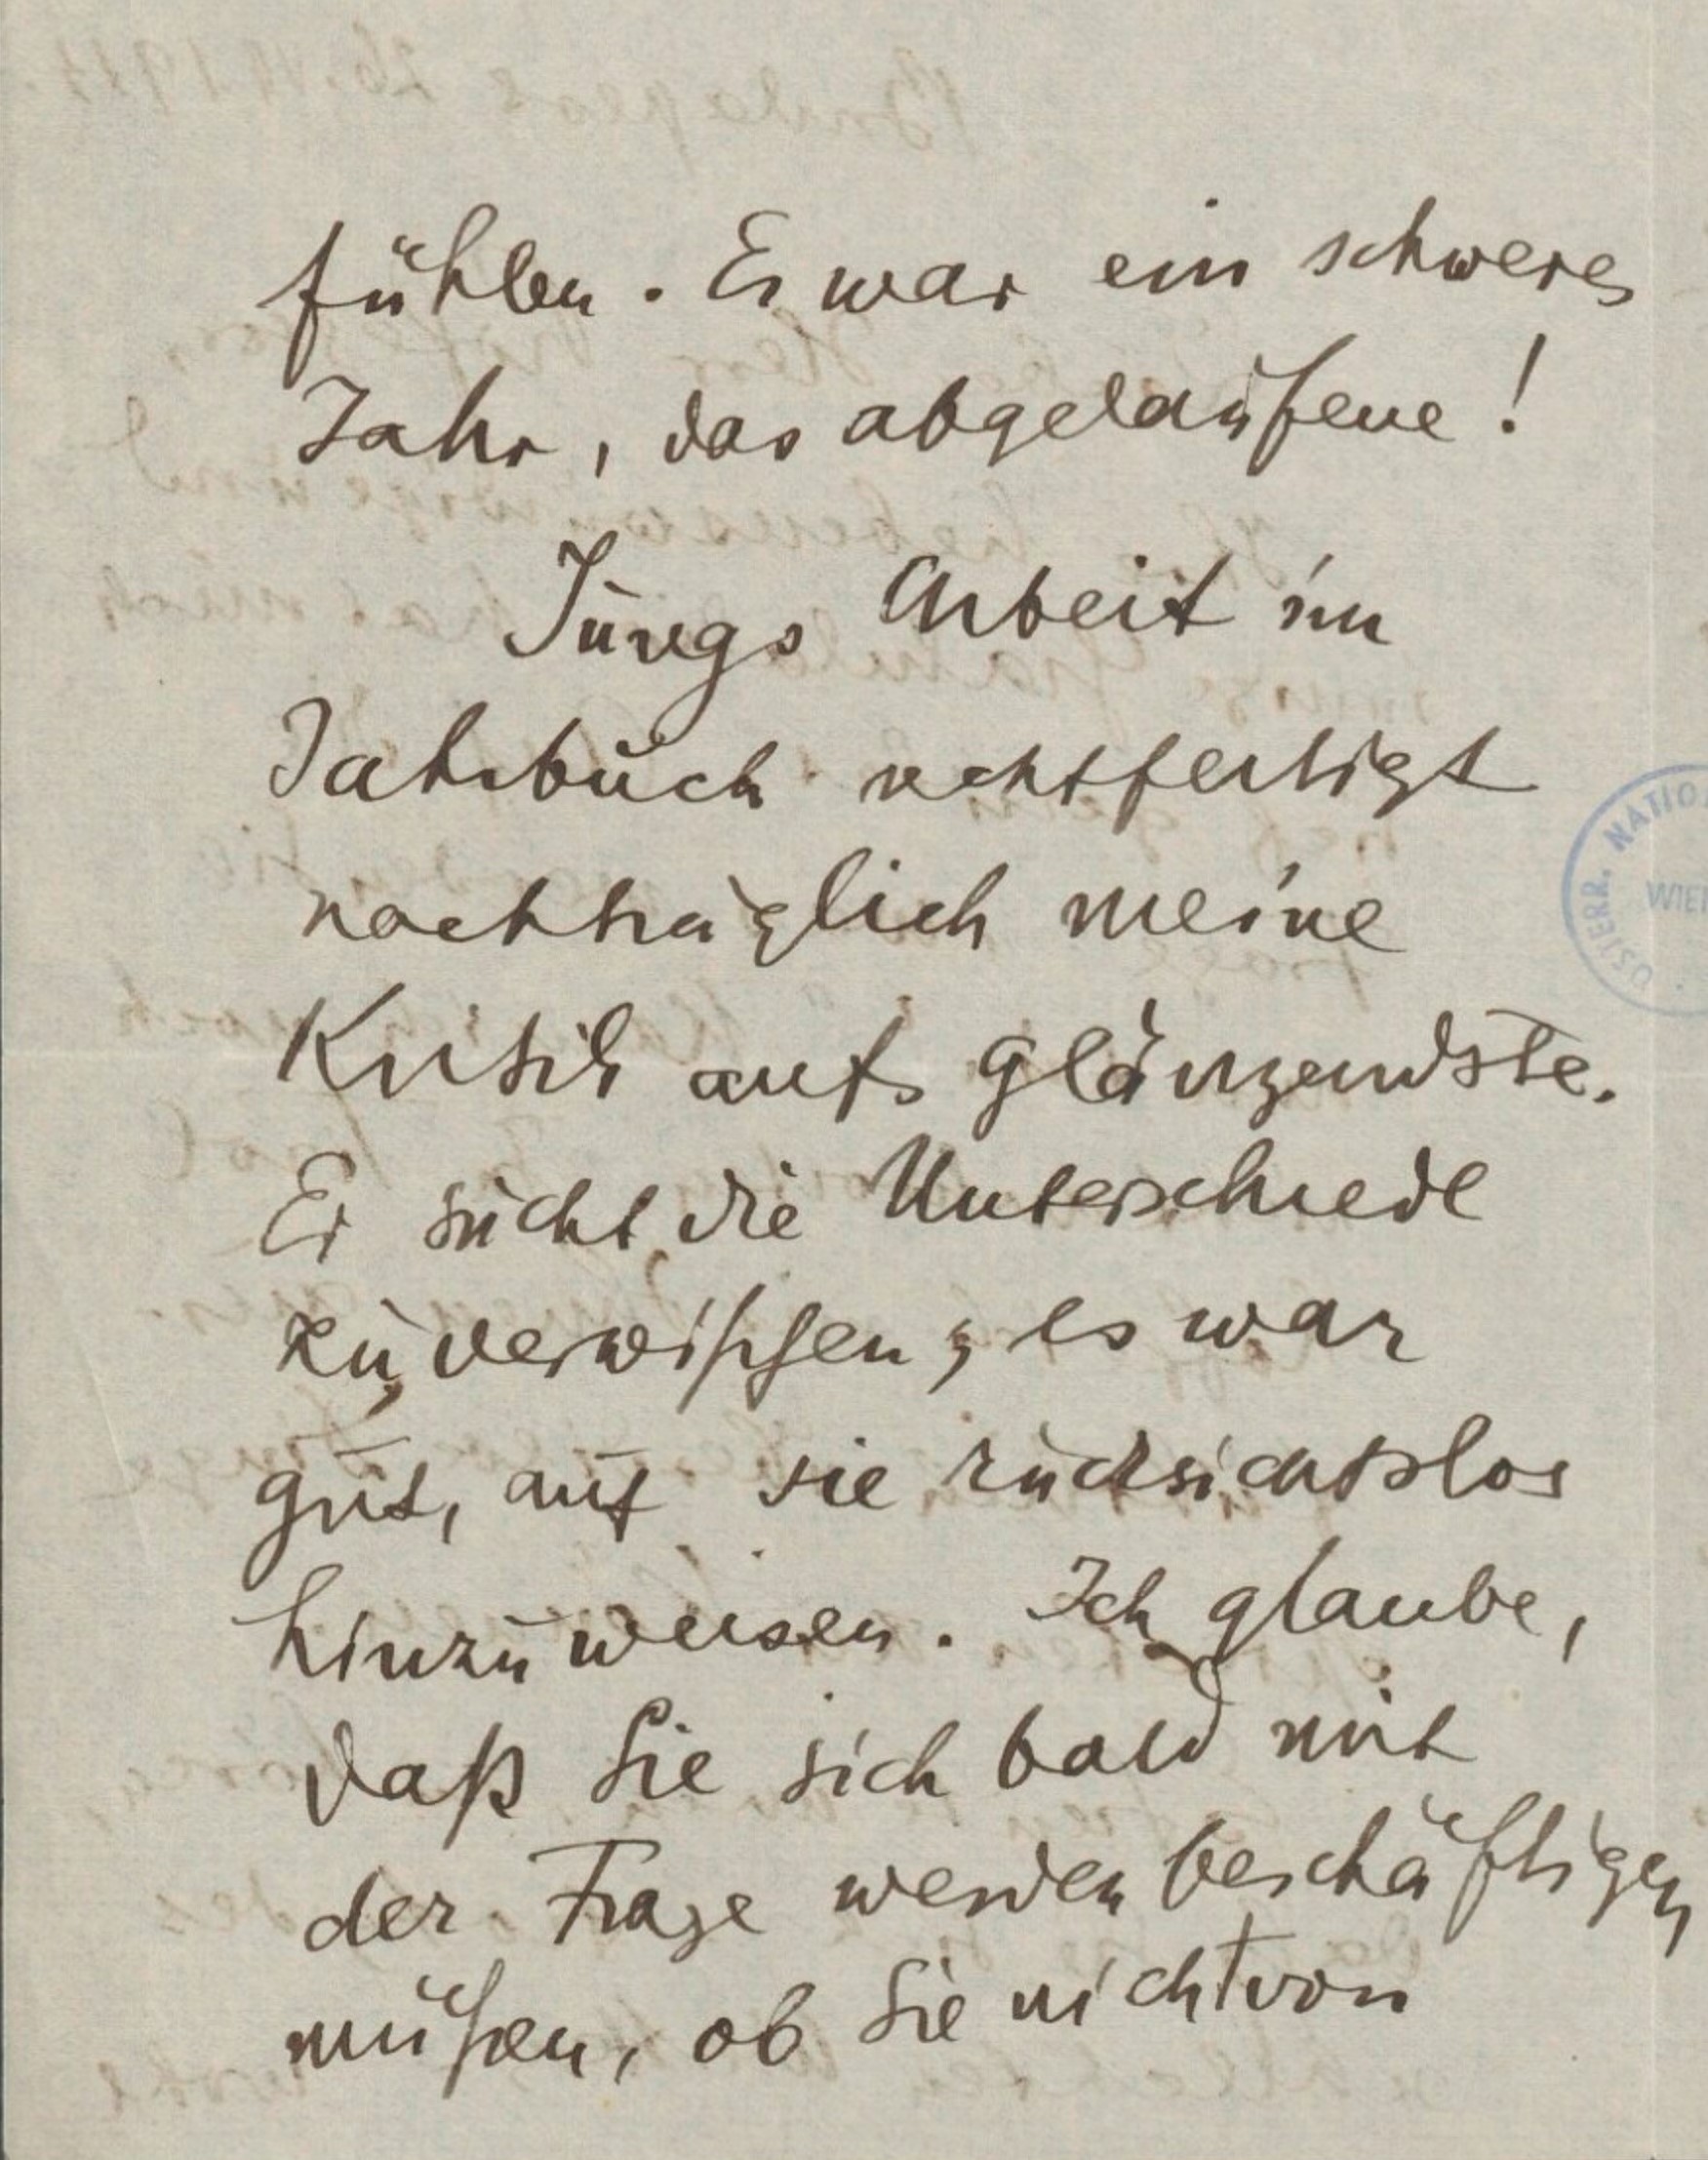 fühlen. Es war ein schweres
Jahr, das abgelaufene!
Jungs Arbeit im
Jahrbuch rechtfertigt
nachträglich meine
Kritik aufs glänzendste.
Er sucht die Unterschiede
zu verwischen; es war
gut, auf sie rücksichtslos
hinzuweisen. Ich glaube,
daß Sie sich bald mit
der Frage werden beschäftigen
müßen, ob Sie nicht von
ÖSTERR. NATIO
WIEN